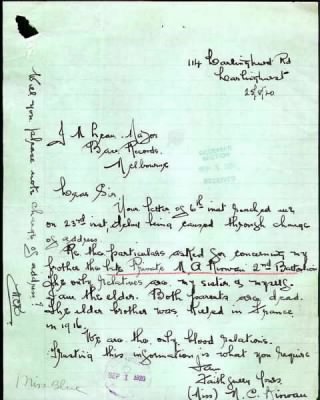 114 Darlinghurst Rd
Darlinghurst
25/8/20
J M Lean. Major
Base Records.
Melbourne
Dear Sir,
Your letter of 6th inst reached me
on 23rd inst, delay being caused through change
of address.
Re the particulars asked for concerning my
brother the late Private M A Kirwan 2nd Battalion
The only relatives are my sister & myself
I am the elder. Both parents are dead.
The elder brother was killed in France
in 1916.
We are the only blood relations.
Trusting this information is what you require
I am
Faithfully Yours
(Miss) M. C. Kirwan
Will you please note change of address?
MCK
Miss Blue
SEP 1 1920
RECEIVED